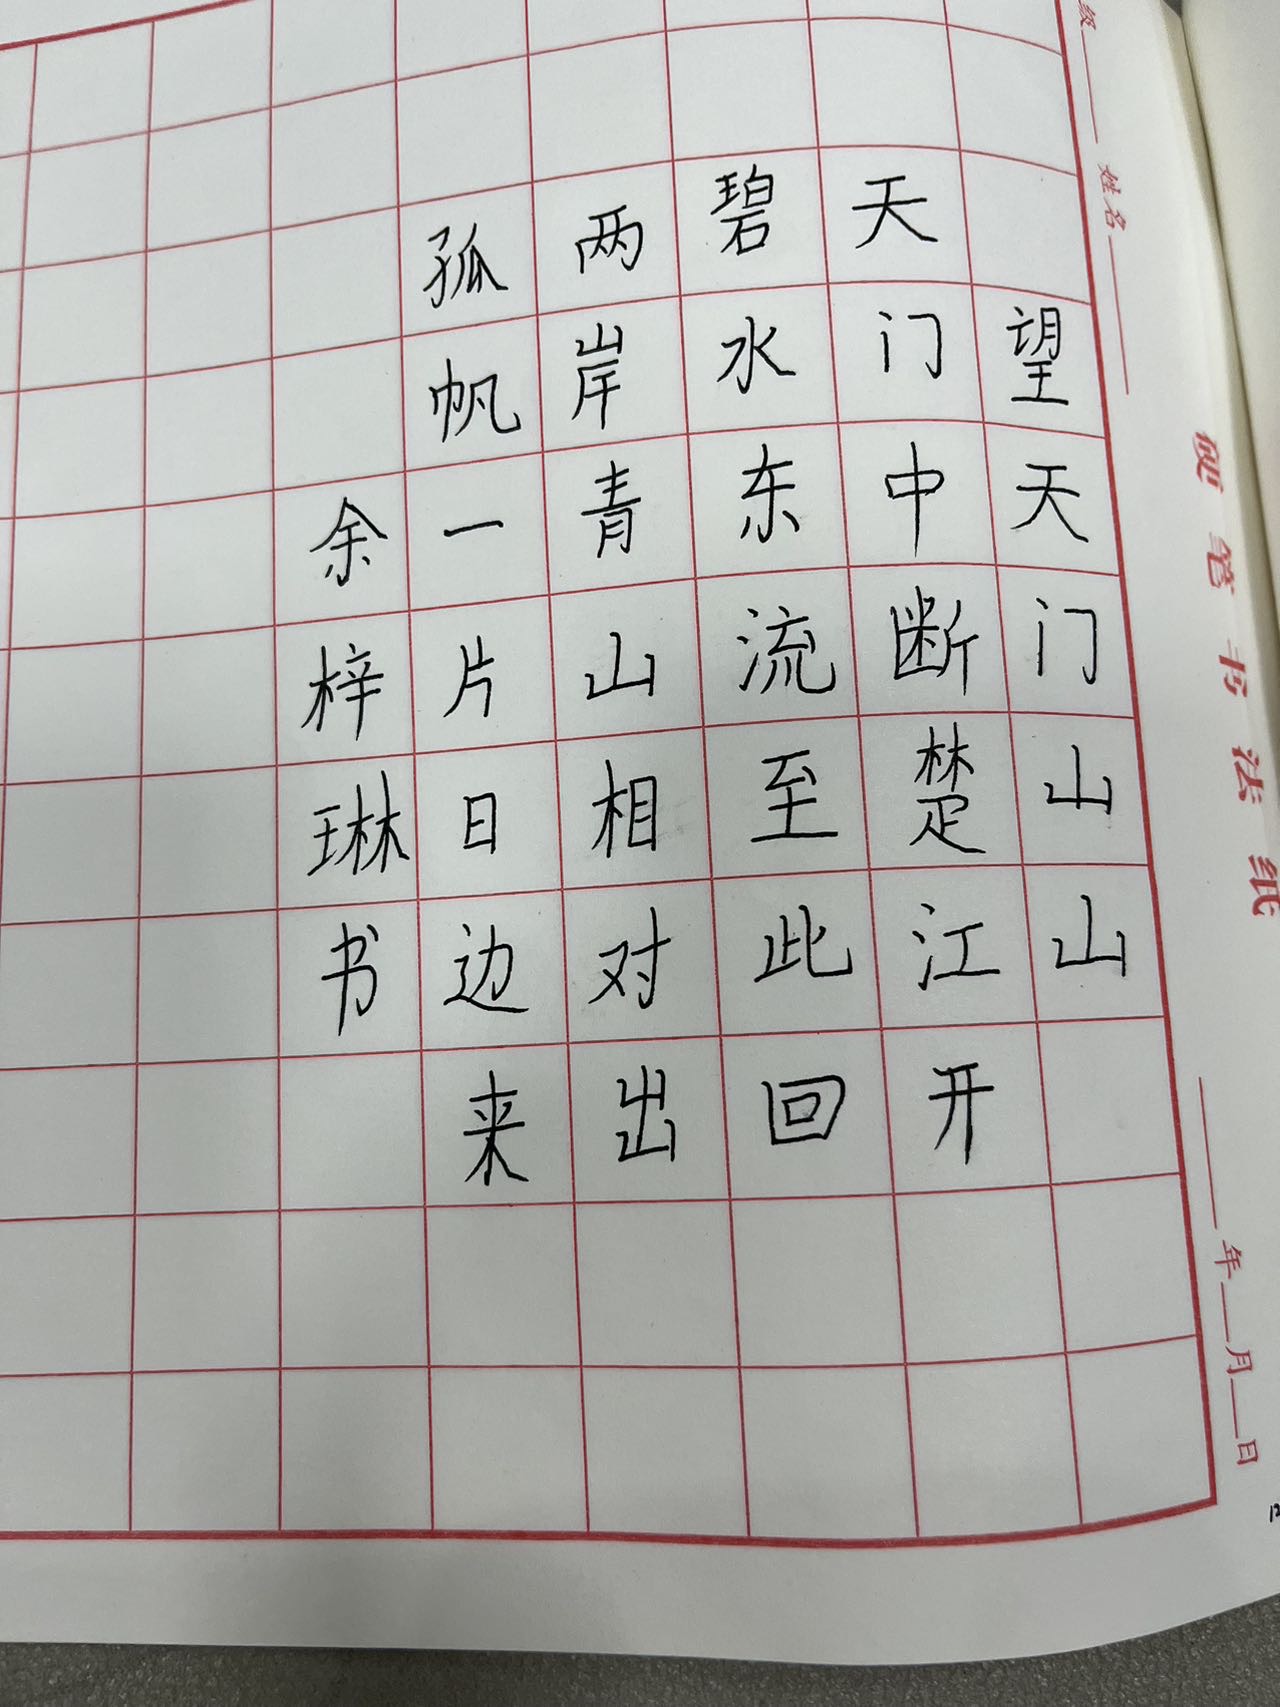 级 姓名
硬笔书法纸
年 月 日
望天门山山
天门中断楚江开
碧水东流至此回
两岸青山相对出
孤帆一片日边来
余梓琳书
12